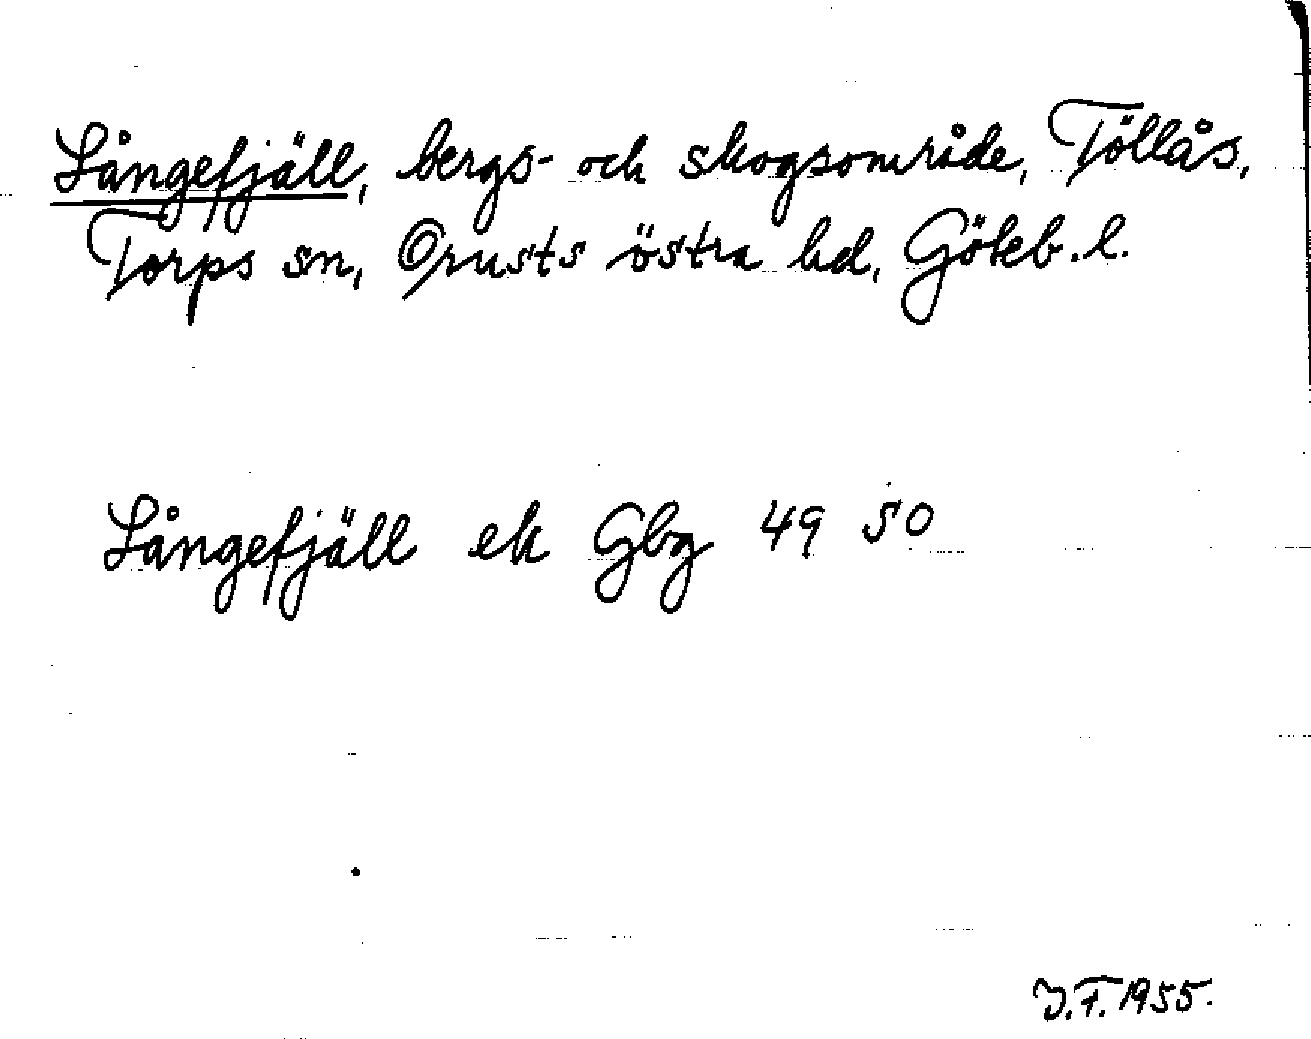 Långefjäll, bergs- och skogsområde, Töllås,
Torps sn, Orusts östra hd, Göteb. l.
Långefjäll ek Gbg 49 50
J.F. 1955.